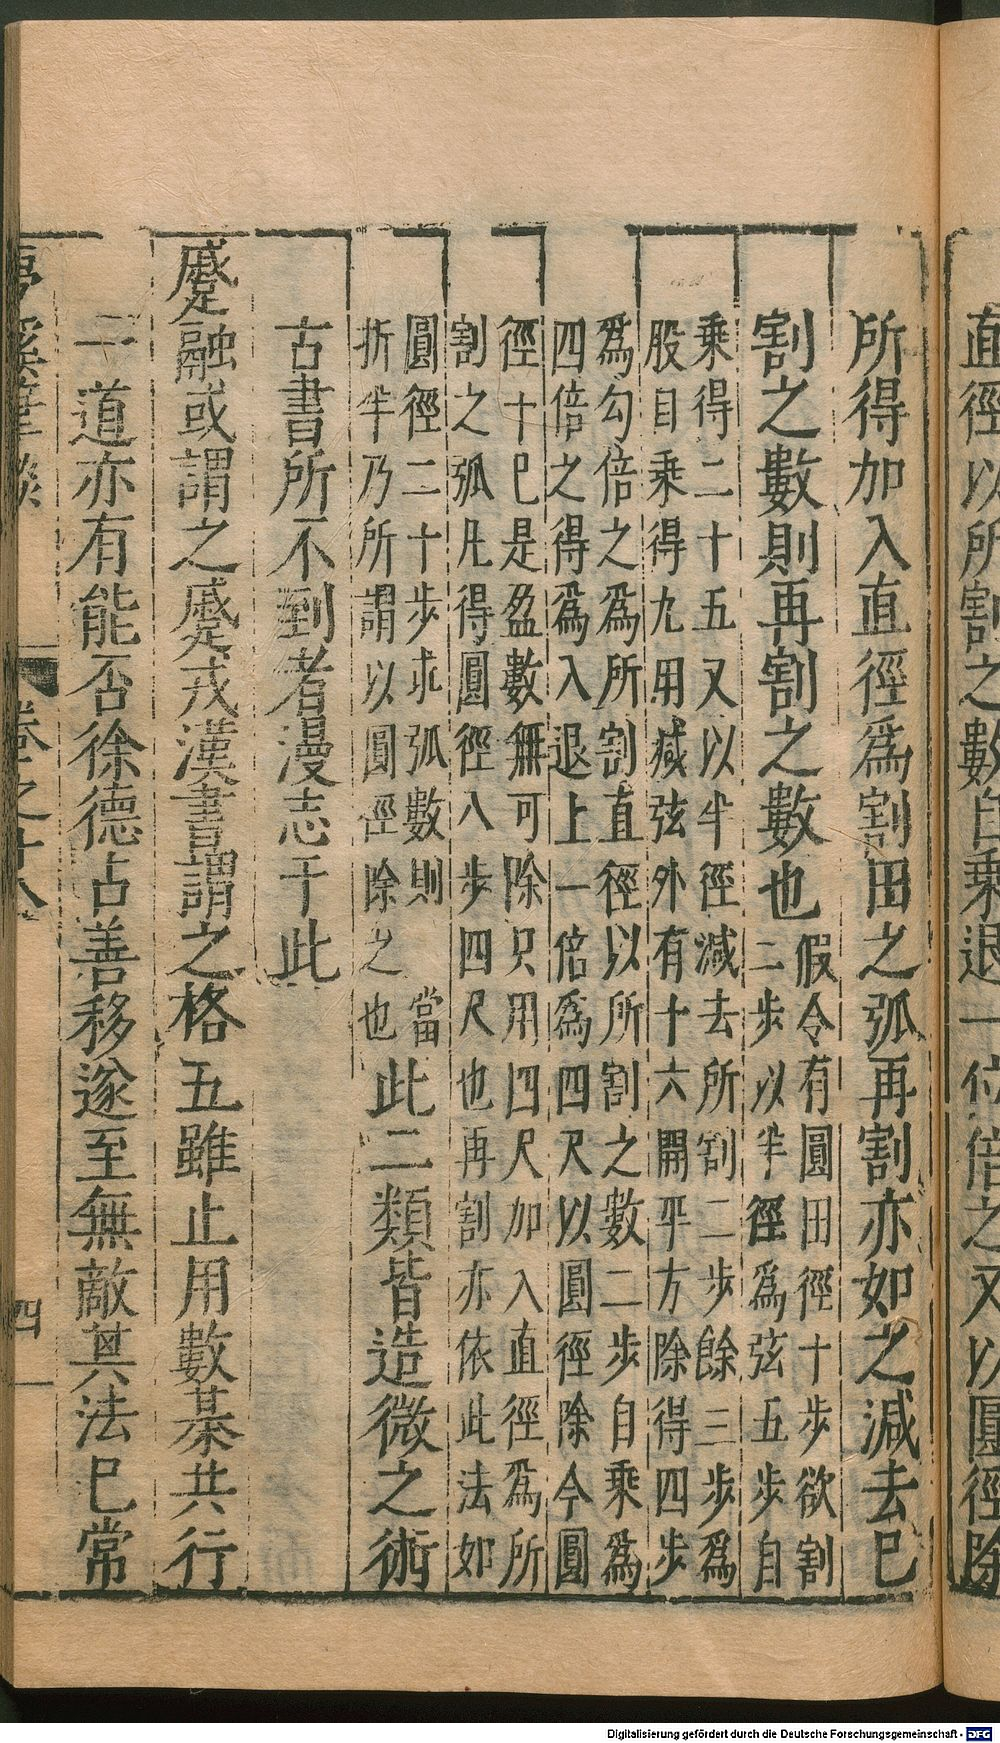 直徑以所割之數自乘退一位倍之又以圓徑除
所得加入直徑爲割田之弧再割亦如之減去已
割之數則再割之數也假令有圓田徑十步欲割
二步以半徑爲弦五步自
乘得二十五又以半徑減去所割二步餘三步爲
股自乘得九用減弦外有十六開平方除得四步
爲勾倍之爲所割直徑以所割之數二步自乘爲
四倍之得爲入退上一倍爲四尺以圓徑除今圓
徑十已是盈數無可除只用四尺加入直徑爲所
割之弧凡得圓徑八步四尺也再割亦依此法如
圓徑二十步求弧數則當
折半乃所謂以圓徑除之也此二類皆造微之術
古書所不到者漫志于此
蹙融或謂之蹙戎漢書謂之格五雖止用數棊共行
一道亦有能否徐德占善移遂至無敵其法已常
夢溪筆談 卷之十八 四
Digitalisierung gefördert durch die Deutsche Forschungsgemeinschaft - DFG